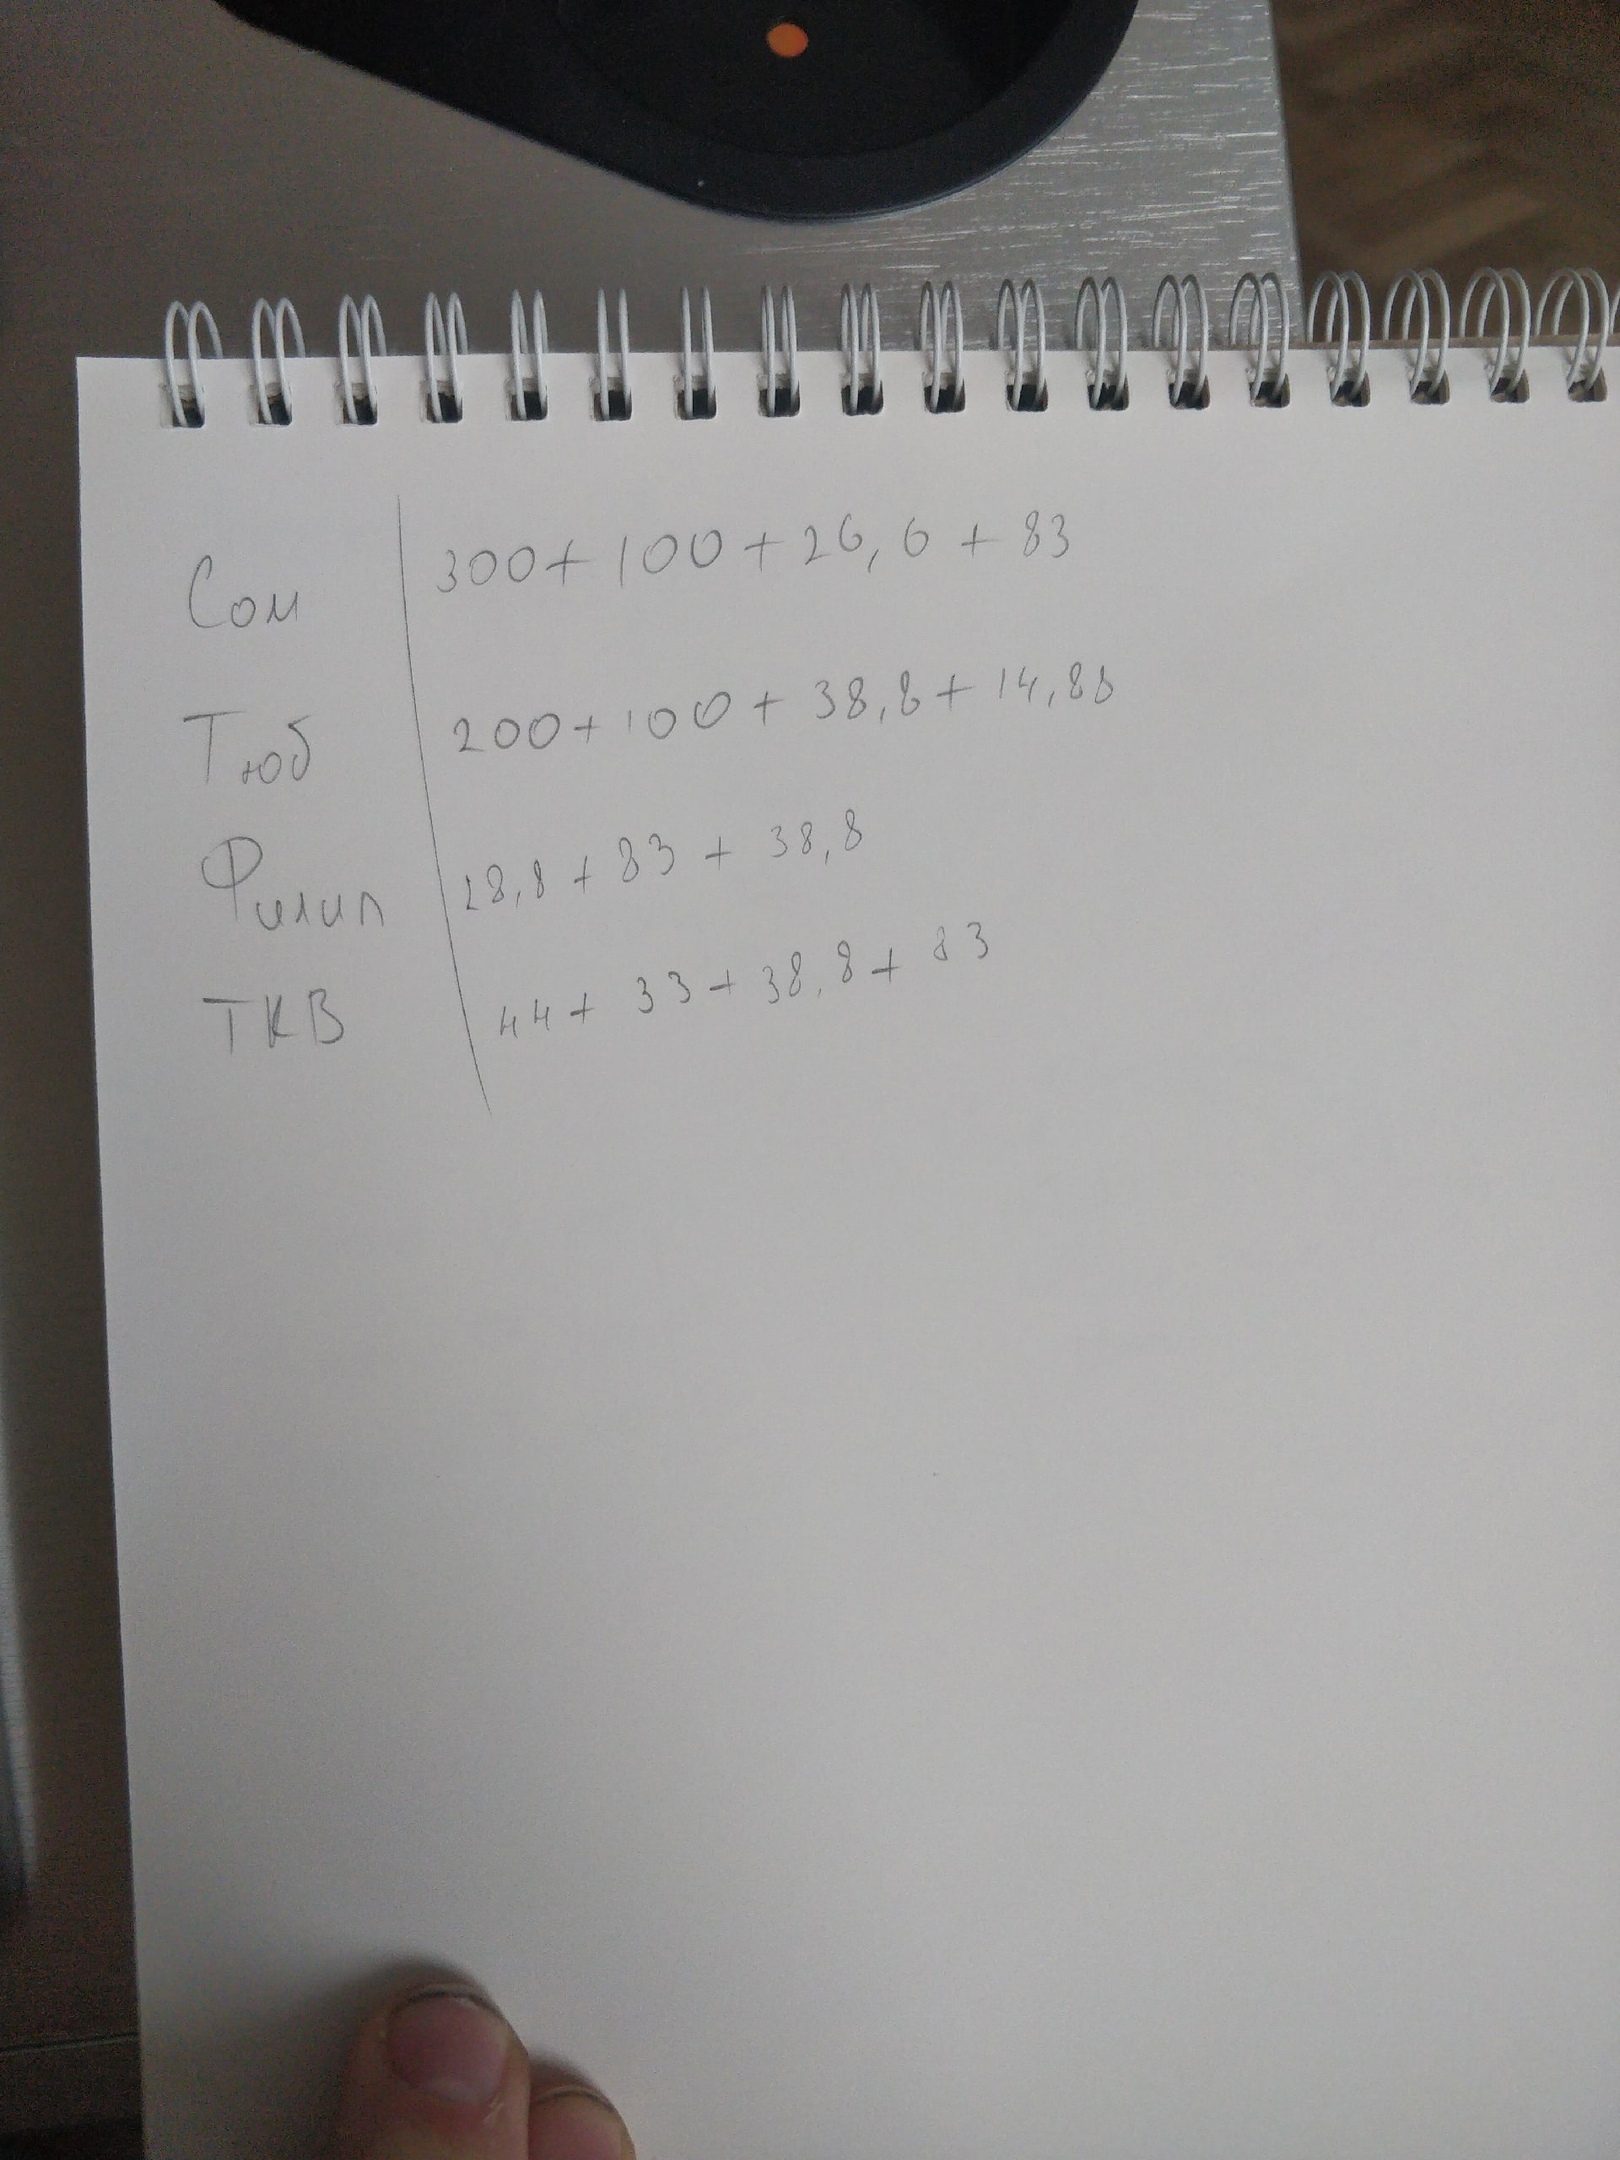 Сом 300+100+26,6+83
Тюб 200+100+38,8+14,88
Филип 28,8+83+38,8
ТКВ 44+33+38,8+83